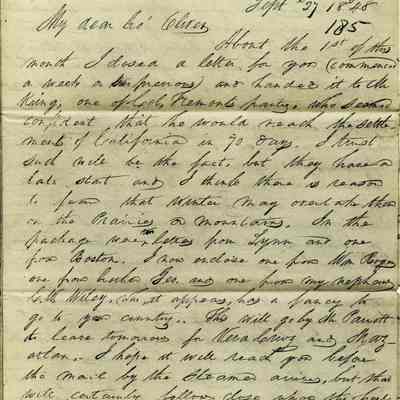 Sept 27 1848
185
My dear bro' Oliver
About the 1st of this
month I closed a letter for you (commenced
a week or two previous) and handed it to Mr
King, one of Col. Fremonts party, who seemed
confident that he would reach the settle
ments of California in 70 days. I trust
such will be the fact, but they have a
late start and I think there is reason
to fear that Winter may overtake them
on the Prairies or Mountains. In the
package were letters from Lynn and one
from Boston. I now enclose one from Wm
one from brother Geo. and one from my nephew
who it appears, has a fancy to
go to your country. This will go by Mr Parrott
to leave tomorrow for Vera Cruz and Maz-
atlan. I hope it will reach you before
the mail by the Steamer arrives, but that
will certainly follow close upon the heels